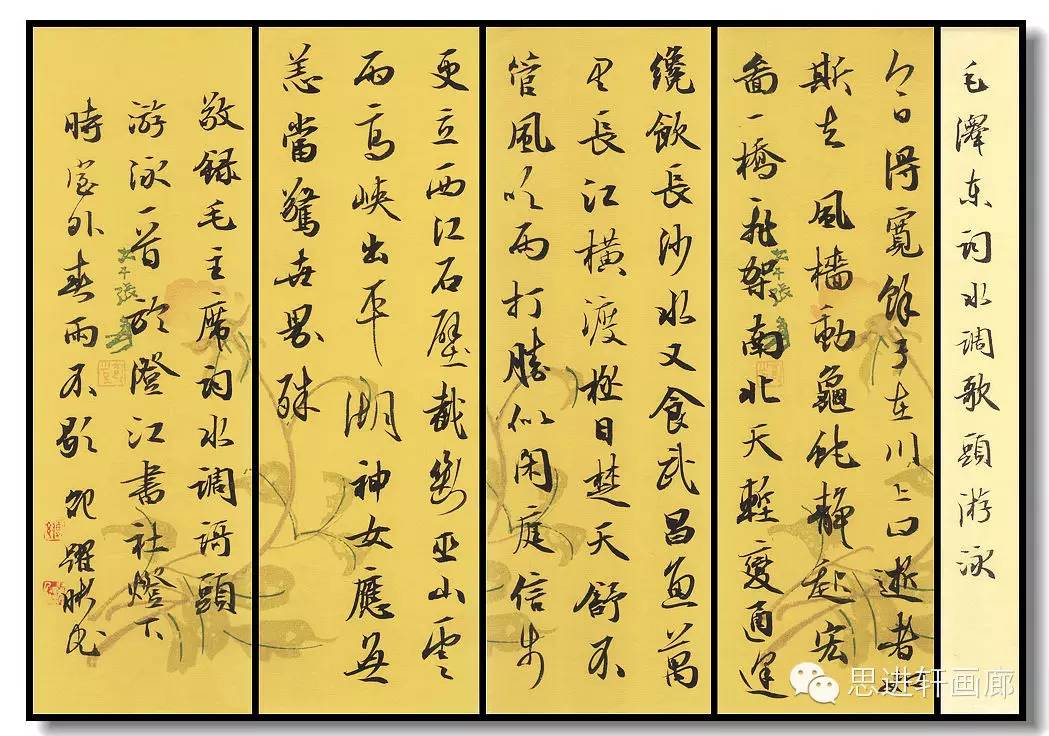 毛澤东詞水調歌頭游泳
今日得寬餘子在川上曰逝者如
斯夫風檣動龜蛇靜起宏
圖一橋飛架南北天塹變通途
纔飲長沙水又食武昌魚萬
里長江橫渡極目楚天舒不
管風吹雨打勝似閑庭信步
更立西江石壁截斷巫山雲
雨高峽出平湖神女應無
恙當驚世界殊
敬録毛主席詞水調謌頭
游泳一首於澄江書社燈下
時窗外春雨不歇 躍書
思进轩画廊